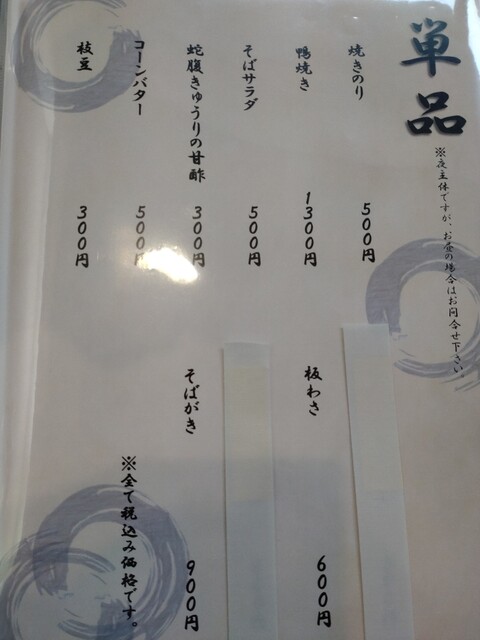 単品
※夜主体ですが、お昼の場合はお問合せ下さい。
焼きのり 500円
鴨焼き 1300円
そばサラダ 500円
蛇腹きゅうりの甘酢 300円
コーンバター 500円
枝豆 300円
板わさ 600円
そばがき 900円
※全て税込み価格です。